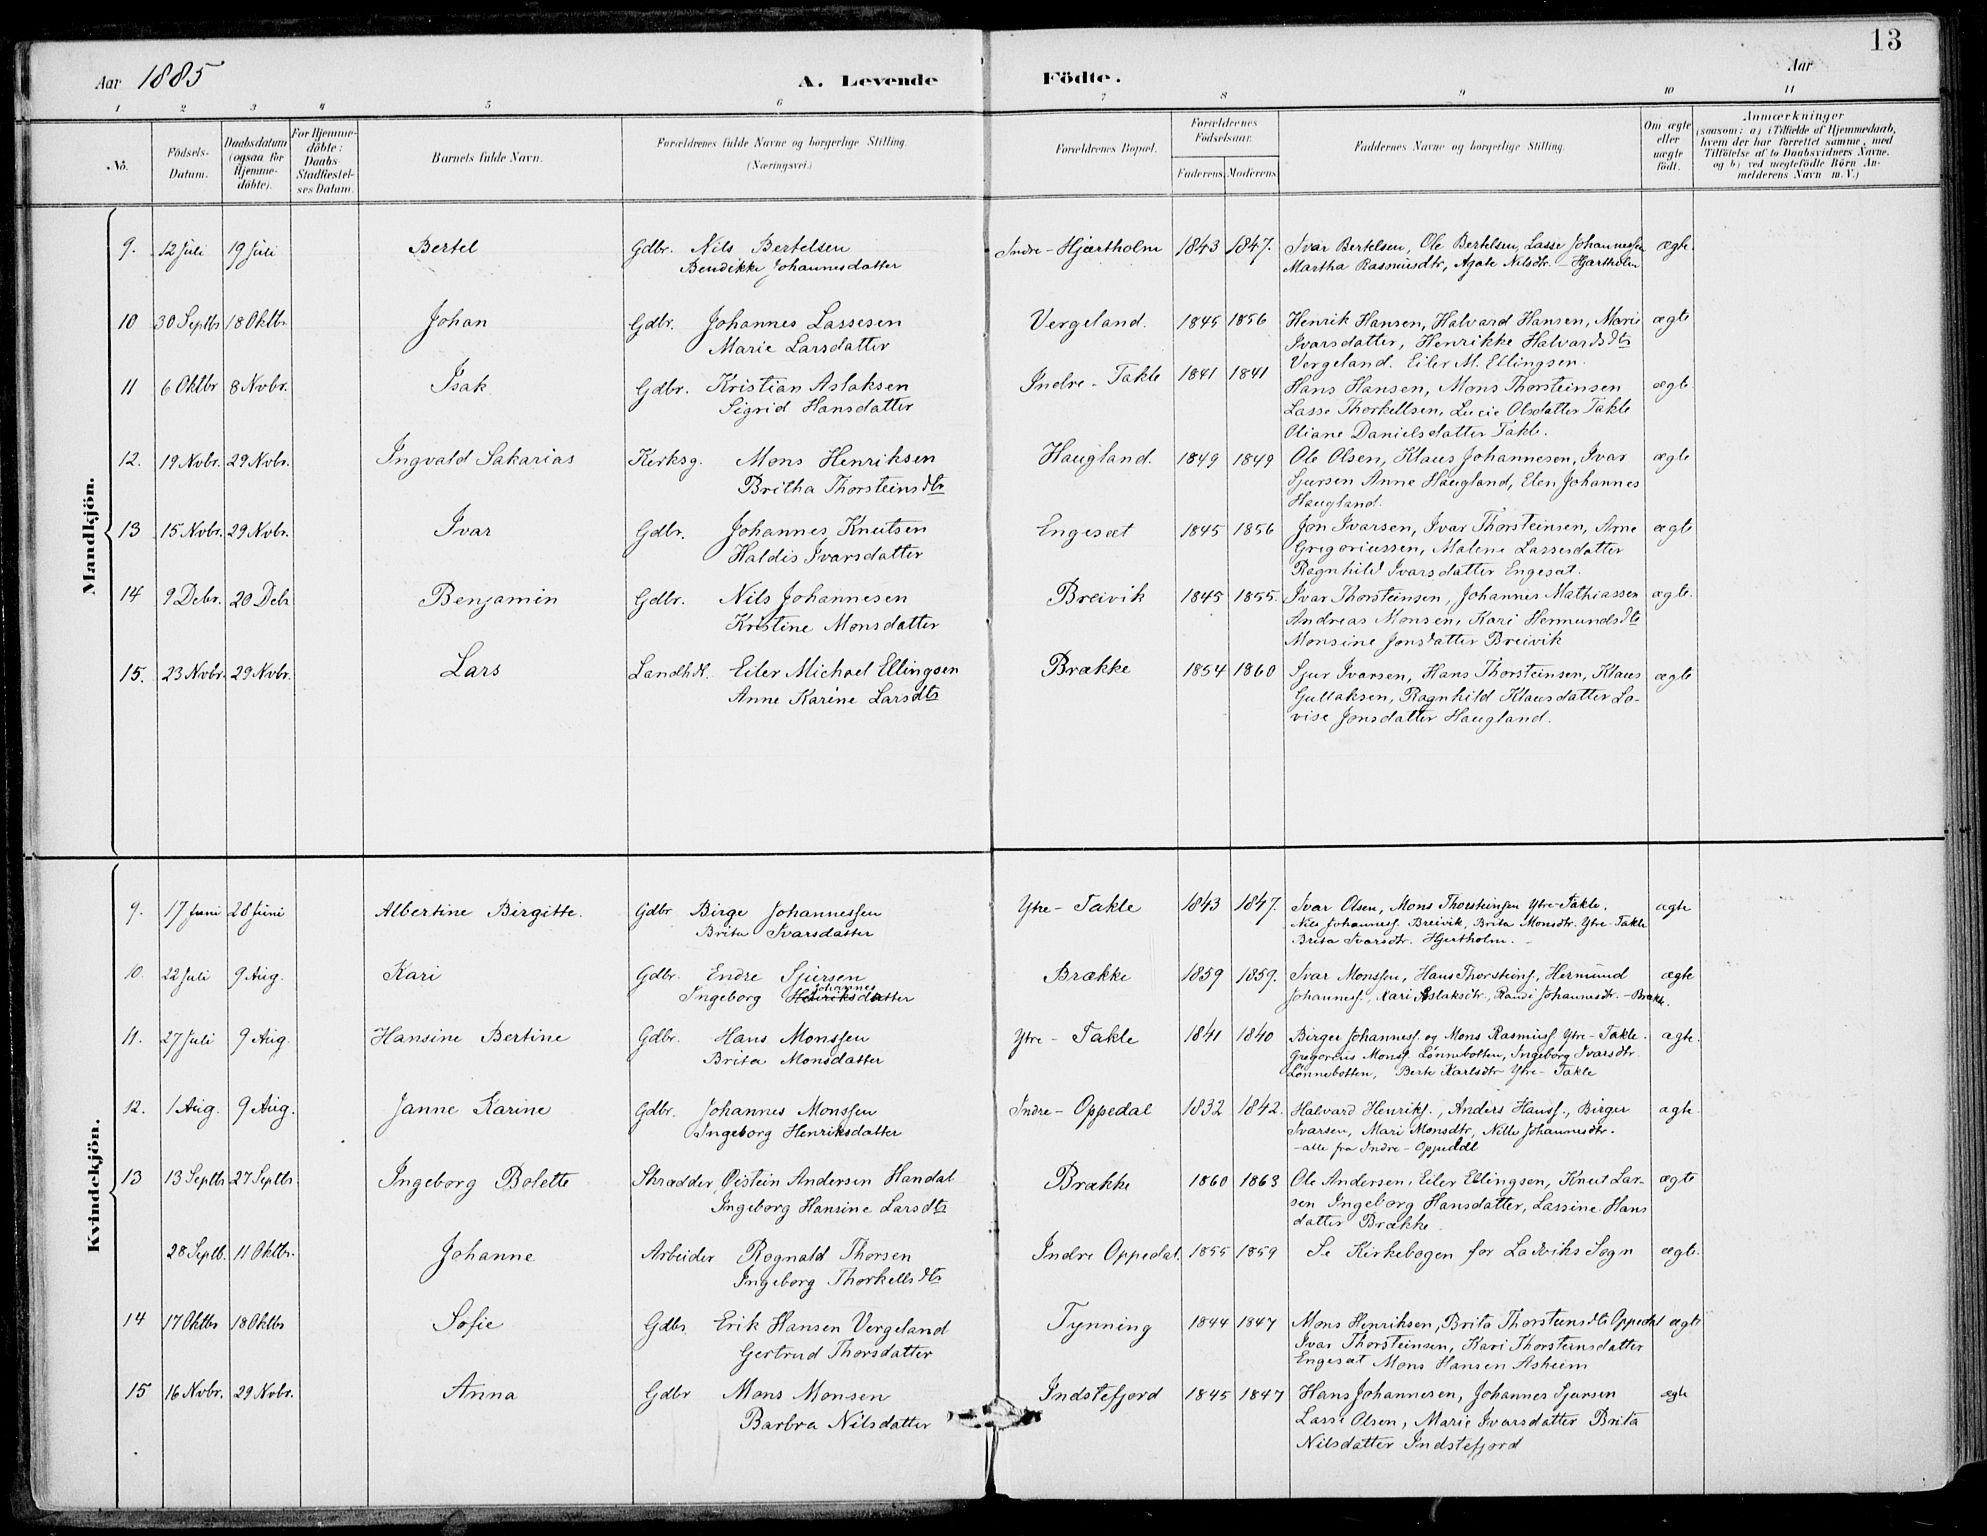 13
Aar 1885 A. Levende Födte. Aar
1 2 3 4 5 6 7 8 9 10 11
No. Födsels-Datum. Daabsdatum (ogsaa for Hjemmedöbte). For Hjemmedöbte: Daabs-Stadfæstelses Datum. Barnets fulde Navn. Forældrenes fulde Navne og borgerlige Stilling. (Næringsvei.) Forældrenes Bopæl. Forældrenes Födselsaar. Faderens. Moderens. Faddernes Navne og borgerlige Stilling. Om ægte eller uægte födt. Anmærkninger (saasom: a) i Tilfælde af Hjemmedaab, hvem der har forrettet samme, med Tilföielse af to Daabsvidners Navne. og b) ved uægtefödte Börn Anmelderens Navn m. V.)
Mandkjön.
9. 12 Juli 19 Juli Bertel Gdbr. Nils Bertelsen Indre-Hjærtholm 1843 1847. Ivar Bertelsen, Ole Bertelsen, Lasse Johannessen ægte.
Bendikke Johannesdatter Martha Rasmusdtr, Agate Nilsdtr. - Hjærtholm
10 30 Septbr 18 Oktbr. Johan Gdbr. Johannes Lassesen Vergeland. 1845 1856 Henrik Hansen, Halvard Hansen, Marie ægte
Marie Larsdatter Ivarsdatter, Henrikke Halvardsdtr
Vergeland. Eiler M. Ellingsen.
11 6 Oktbr 8 Novbr. Isak Gdbr. Kristian Aslaksen Indre-Takle 1841 1841 Hans Hansen, Mons Thorsteinsen ægte.
Sigrid Hansdatter Lasse Thorkellsen, Lucie Olsdatter Takle
Oliane Danielsdatter Takle.
12. 19 Novbr. 29 Novbr. Ingvald Sakarias Kerksg. Mons Henriksen Haugland. 1849 1849 Ole Olsen, Klaus Johannesen, Ivar ægte
Britha Thorsteinsdtr Sjursen Anne Haugland, Elen Johannes
Haugland.
13 15 Novbr. 29 Novbr. Ivar Gdbr. Johannes Knutsen Engesæt 1845 1856 Jon Ivarsen, Ivar Thorsteinsen, Arne ægte
Haldis Ivarsdatter Gregoriussen, Malene Lassesdatter
Ragnhild Ivarsdatter Engesat.
14 9 Debr. 20 Debr Benjamin Gdbr. Nils Johannesen Breivik 1845 1855. Ivar Thorsteinsen, Johannes Mathiassen ægte.
Kristine Monsdatter Andreas Monsen, Kari Hermundsdtr
Monsine Jonsdatter Breivik
15. 23 Novbr. 29 Novbr. Lars Landhdl. Eiler Michael Ellingsen Brække 1854 1860 Sjur Ivarsen, Hans Thorsteinsen, Klaus ægte
Anne Karine Larsdtr Gullaksen, Ragnhild Klausdatter Lo-
vise Jonsdatter Haugland.
Kvindekjön.
9. 17 Juni 28 Juni Albertine Birgitte. Gdbr Birge Johannessen Ytre-Takle 1843 1847. Ivar Olsen, Mons Thorsteinsen Ytre-Takle. ægte
Brita Ivarsdatter Nils Johannesf. Breivik, Brita Monsdtr. Ytre-Takle
Brita Ivarsdtr. Hjertholm. -
10. 22 Juli 9 Aug. Kari Gdbr. Endre Sjursen Brække 1859 1859. Ivar Monssen, Hans Thorsteinf, Hermund ægte
Johannes
Ingeborg Henriksdatter Johannesf., Kari Aslaksdtr., Randi Johannesdtr. - Brække.
11. 27 Juli 9 Aug. Hansine Bertine Gdbr. Hans Monssen Ytre-Takle 1841 1840 Birger Johannesf. og Mons Rasmusf. Ytre-Takle. ægte.
Brita Monsdatter Gregorius Monsf. Lønnebotten, Ingeborg Ivarsdtr.
Lønnebotten, Berte Karlsdtr Ytre-Takle
12. 1 Aug. 9 Aug. Janne Karine Gdbr. Johannes Monssen Indre-Oppedal 1832 1842. Halvard Henrikf., Anders Hansf., Birger ægte.
Ingeborg Henriksdatter Ivarsen, Mari Monsdtr, Nille Johannesdtr.
-alle fra Indre-Oppedal
13 13 Septbr 27 Septbr. Ingeborg Bolette Skrædder Øistein Andersen Handal Brække 1860 1863 Ole Andersen, Eiler Ellingsen, Knut Lar- ægte
Ingeborg Hansine Larsdtr sen Ingeborg Hansdatter, Lassine Hans
datter Brække
28 Septb. 11 Oktbr. Johanne Arbeider Rognald Thorsen Indre Oppedal. 1855 1859 Se Kirkebogen for Ladviks Sogn ægte.
Ingeborg Thorkellsdtr
14 17 Oktbr 18 Oktbr Sofie Gdbr Erik Hansen Vergeland Tynning 1844 1847 Mons Henriksen, Brita Thorsteinsdtr Oppedal ægte
Gertrud Thorsdatter Ivar Thorsteinsen, Kari Thorsteinsdatter
Engesat Mons Hansen Asheim
15 16 Novbr. 29 Novbr. Anna Gdbr Mons Monsen Indstefjord 1845 1847 Hans Johannesen, Johannes Sjursen ægte
Barbra Nilsdatter Lasse Olsen, Marie Ivarsdatter Brita
Nilsdatter Indstefjord